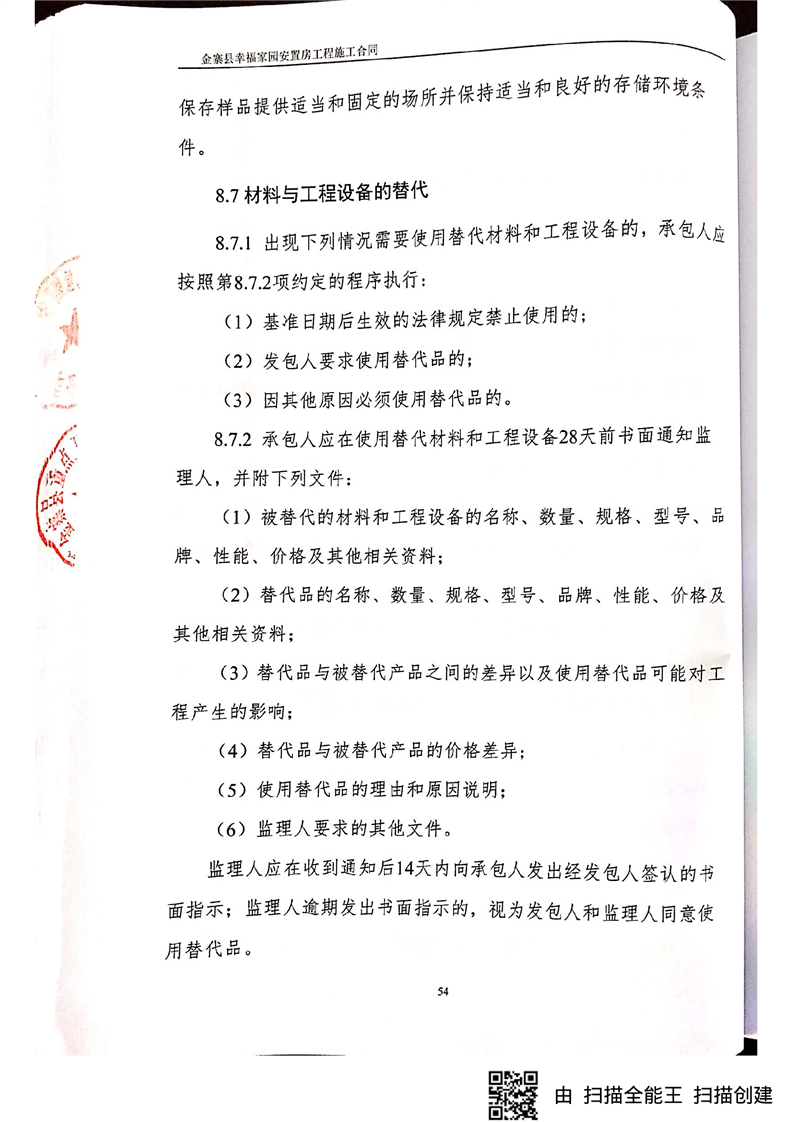 金寨县幸福家园安置房工程施工合同
保存样品提供适当和固定的场所并保持适当和良好的存储环境条
件。
8.7 材料与工程设备的替代
8.7.1 出现下列情况需要使用替代材料和工程设备的，承包人应
按照第8.7.2项约定的程序执行：
（1）基准日期后生效的法律规定禁止使用的；
（2）发包人要求使用替代品的；
（3）因其他原因必须使用替代品的。
8.7.2 承包人应在使用替代材料和工程设备28天前书面通知监
理人，并附下列文件：
（1）被替代的材料和工程设备的名称、数量、规格、型号、品
牌、性能、价格及其他相关资料；
（2）替代品的名称、数量、规格、型号、品牌、性能、价格及
其他相关资料；
（3）替代品与被替代产品之间的差异以及使用替代品可能对工
程产生的影响；
（4）替代品与被替代产品的价格差异；
（5）使用替代品的理由和原因说明；
（6）监理人要求的其他文件。
监理人应在收到通知后14天内向承包人发出经发包人签认的书
面指示；监理人逾期发出书面指示的，视为发包人和监理人同意使
用替代品。
54
由 扫描全能王 扫描创建